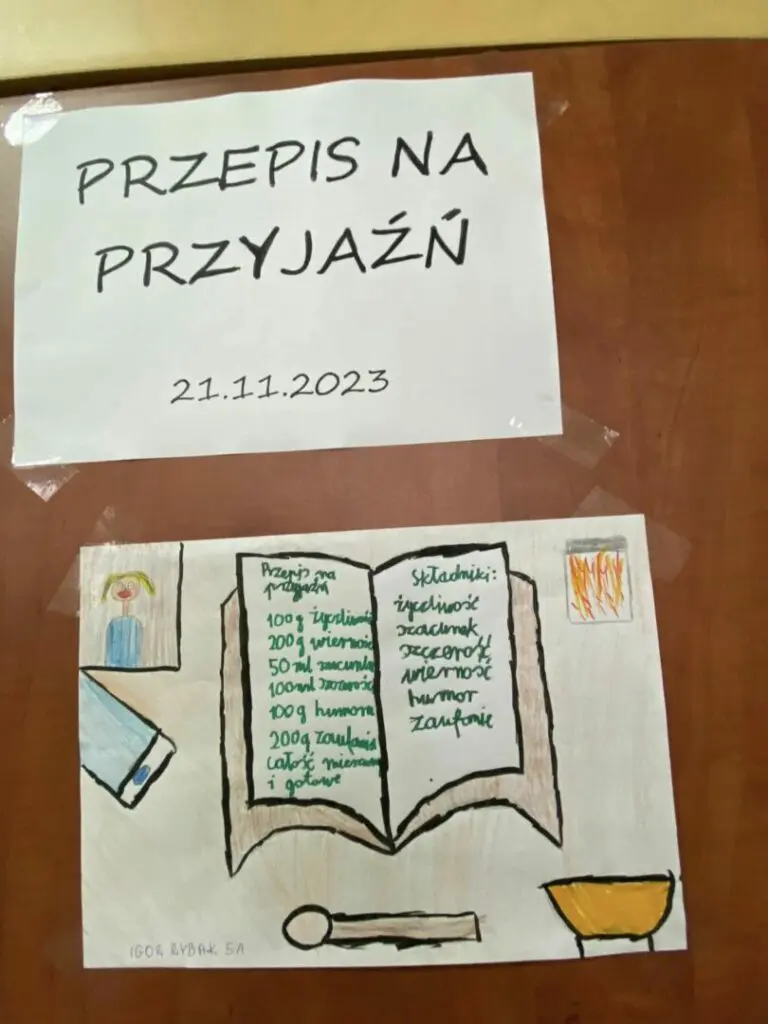 PRZEPIS NA
PRZYJAŹŃ
21.11.2023
Przepis na
przyjaźń
100g życzliwości
200g wierności
50 ml szacunku
100ml szczerości
100g humoru
200g zaufania
całość mieszamy
i gotowe
Składniki:
życzliwość
szacunek
szczerość
wierność
humor
zaufanie
IGOR RYBAK 5A